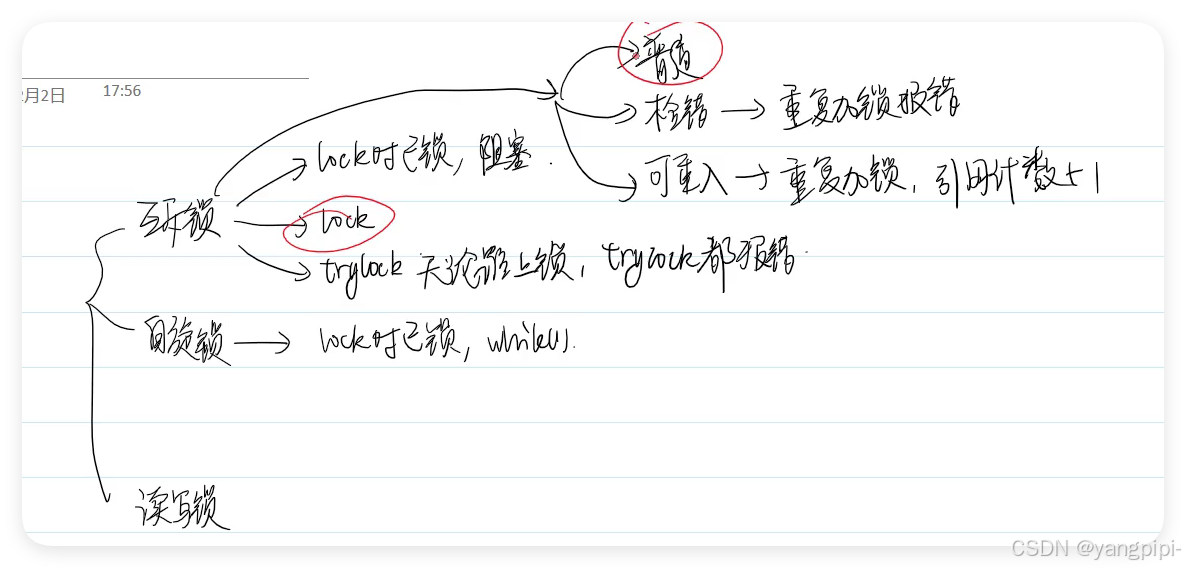 月2日
17:56
普通
检错 → 重复加锁报错
lock时已锁, 阻塞.
可重入 → 重复加锁, 引用计数+1
互斥锁
lock
trylock 无论谁上锁, trylock都报错.
自旋锁 → lock时已锁, while(1).
读写锁
CSDN @yangpipi-